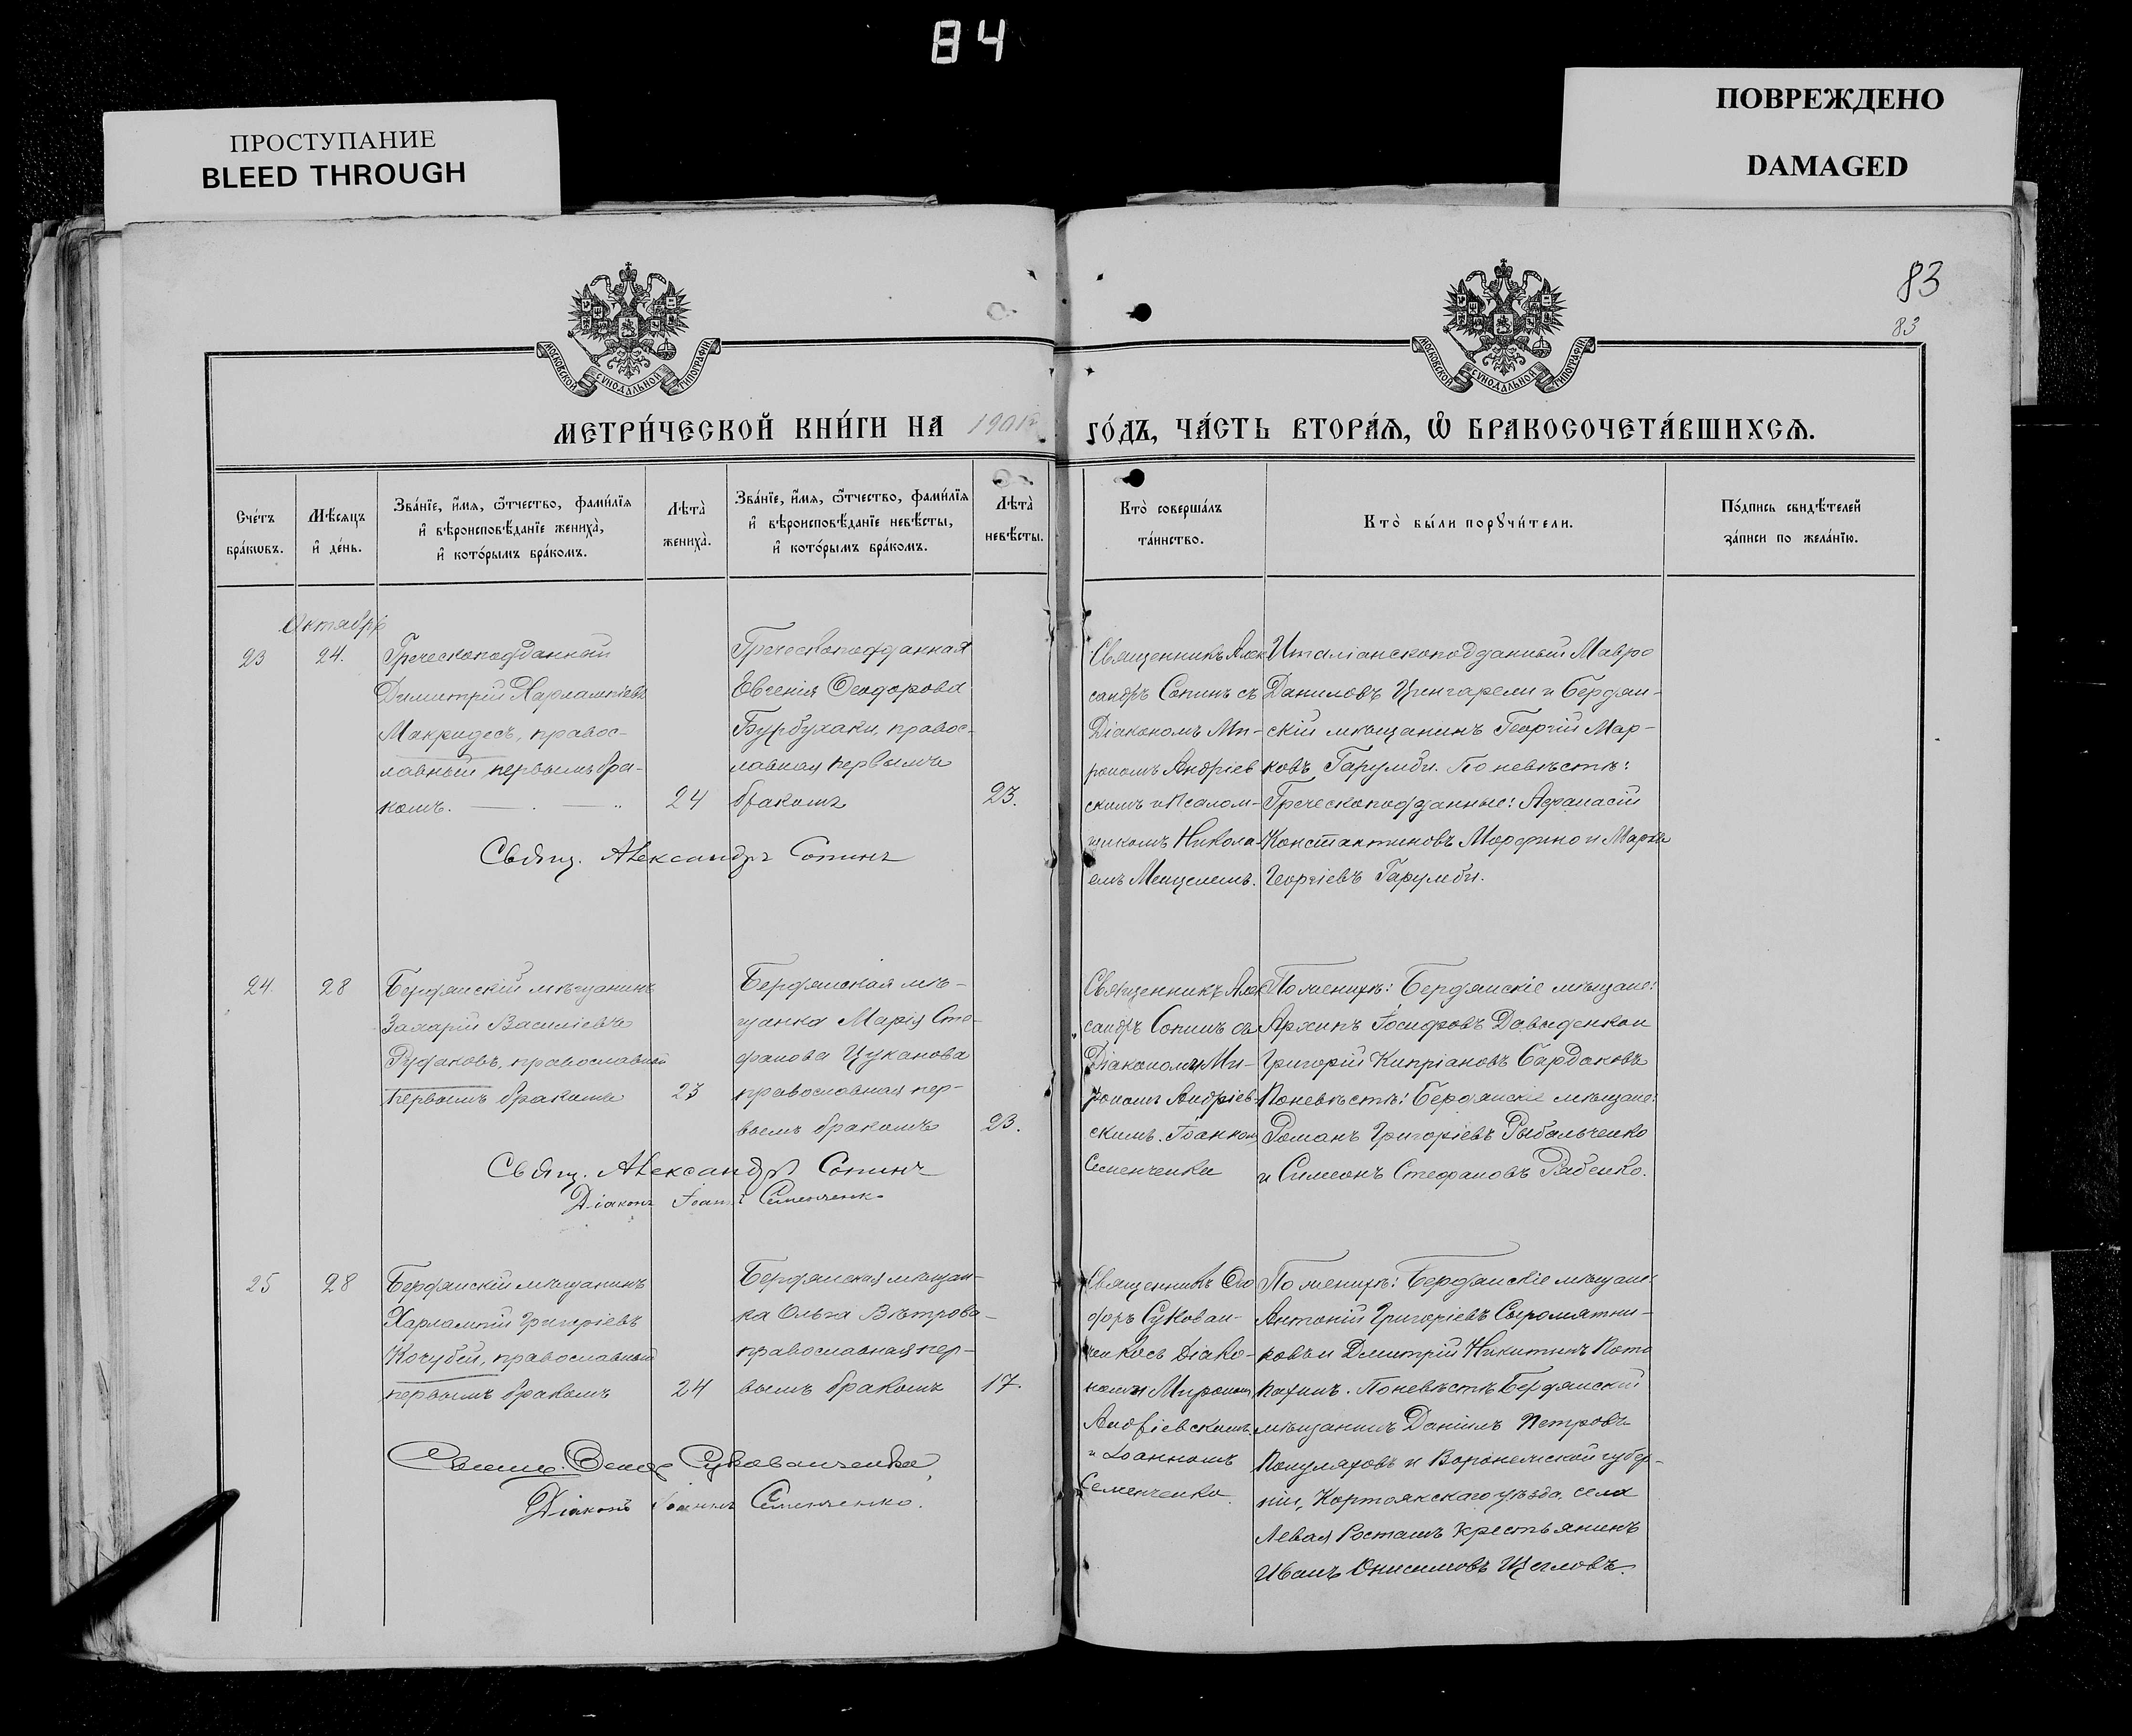 84
ПРОСТУПАНИЕ
BLEED THROUGH
ПОВРЕЖДЕНО
DAMAGED
83
83
МОСКОВСКОЙ СѴНОДАЛЬНОЙ ТИПОГРАФІИ
МОСКОВСКОЙ СѴНОДАЛЬНОЙ ТИПОГРАФІИ
МЕТРИ́ЧЕСКОЙ КНИ́ГИ НА 1901 ГО́ДЪ, ЧА́СТЬ ВТОРА́Ѧ, Ѽ БРАКОСОЧЕТА́ВШИХСѦ.
Сче́тъ
бра́кѡвъ.
Мѣ́сѧцъ
и҆ де́нь.
Зва́нїе, и҆́мѧ, ѻ҆́тчество, фами́лїѧ
и҆ вѣроисповѣ́данїе жениха̀,
и҆ кото́рымъ бра́комъ.
Лѣта̀
жениха̀.
Зва́нїе, и҆́мѧ, ѻ҆́тчество, фами́лїѧ
и҆ вѣроисповѣ́данїе невѣ́сты,
и҆ кото́рымъ бра́комъ.
Лѣта̀
невѣ́сты.
Кто̀ соверша́лъ
та́инство.
Кто̀ бы́ли порꙋчи́тели.
По́дпись свидѣ́телей
за́писи по жела́нїю.
Октябрь
23
24.
Греческоподданный
Димитрій Харлампіевъ
Макридесъ, правос-
лавный первымъ бра-
комъ.
24
Греческоподданная
Евгенія Ѳеодорова
Бурбулаки, правос-
лавная первымъ
бракомъ
23.
Священникъ Алек
сандръ Сопинъ съ
Діакономъ Ми-
рономъ Андріев
скимъ и Псалом-
щикомъ Никола-
емъ
Италіанскоподданный Мавро
Даниловъ Цингарели и Бердян-
скій мѣщанинъ Георгій Мар-
ковъ Гарумби. По невѣстѣ:
Греческоподданные: Аѳанасій
Константиновъ Морфино и Марко
Георгіевъ Гарумби.
Свящ. Александръ Сопинъ
24.
28
Бердянскій мѣщанинъ
Захарій Василіевъ
Рудаковъ, православный
первымъ бракомъ
23
Бердянская мѣ-
щанка Марія Сте-
фанова Цуканова
православная пер-
вымъ бракомъ
23.
Священникъ Алек
сандръ Сопинъ съ
Діакономъ Ми-
рономъ Андріев-
скимъ. Іоанномъ
Семенченко
По женихѣ: Бердянскіе мѣщане:
Архипъ Іосифовъ Давиденко и
Григорій Кипріановъ Бардаковъ
По невѣстѣ: Бердянскіе мѣщане:
Романъ Григоріевъ Рыбальченко
и Симеонъ Стефановъ Рябенко.
Свящ. Александръ Сопинъ
Діаконъ Іоаннъ Семенченко
25
28
Бердянскій мѣщанинъ
Харлампій Григоріевъ
Кочубей, православный
первымъ бракомъ
24
Бердянская мѣщан-
ка Ольга Вѣтрова
православная пер-
вымъ бракомъ
17.
Священникъ Ѳео
доръ Сукован-
ченко съ Діако-
номъ Мирономъ
Андріевскимъ
и Іоанномъ
Семенченко
По женихѣ: Бердянскіе мѣщане
Антоній Григоріевъ Сыромятни-
ковъ и Дмитрій Никитинъ
По невѣстѣ Бердянскій
мѣщанинъ Даніилъ Петровъ
и Воронежской губер-
ніи, Коротоякскаго уѣзда, села
Левая Росташъ крестьянинъ
Иванъ Онисимовъ Щегловъ.
Ѳеодоръ Сукованченко
Діаконъ Іоаннъ Семенченко.